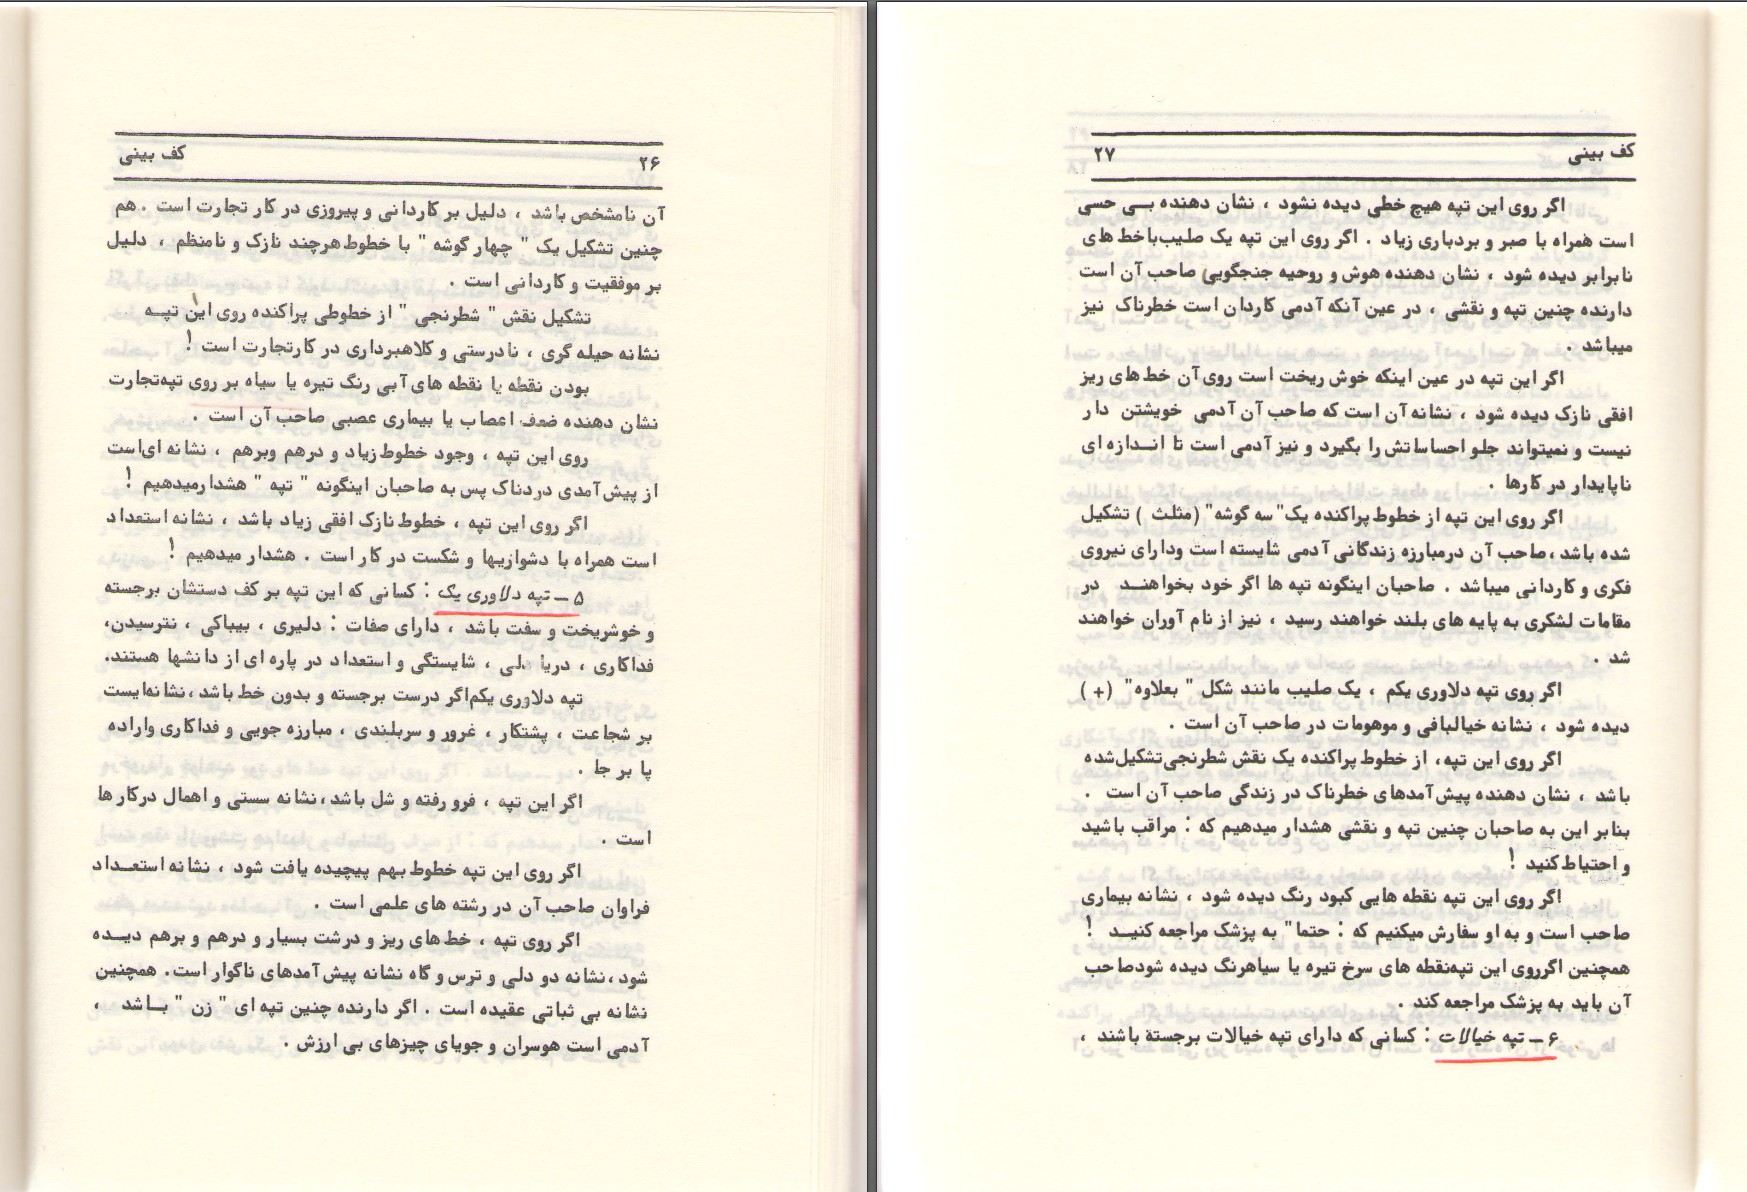 ۲۶ کف بینی
آن نامشخص باشد ، دلیل بر کاردانی و پیروزی در کار تجارت است . هم
چنین تشکیل یک " چهار گوشه " با خطوط هرچند نازک و نامنظم ، دلیل
بر موفقیت و کاردانی است .
تشکیل نقش " شطرنجی " از خطوطی پراکنده روی این تپـه
نشانه حیله گری ، نادرستی و کلاهبرداری در کارتجارت است !
بودن نقطه یا نقطه های آبی رنگ تیره یا سیاه بر روی تپه‌تجارت
نشان دهنده ضعف اعصاب یا بیماری عصبی صاحب آن است .
روی این تپه ، وجود خطوط زیاد و درهم وبرهم ، نشانه ای‌است
از پیش‌آمدی دردناک پس به صاحبان اینگونه " تپه " هشدارمیدهیم !
اگر روی این تپه ، خطوط نازک افقی زیاد باشد ، نشانه استعداد
است همراه با دشوازیها و شکست در کار است . هشدار میدهیم !
۵ ـ تپه دلاوری یک : کسانی که این تپه بر کف دستشان برجسته
و خوشریخت و سفت باشد ، دارای صفات : دلیری ، بیباکی ، نترسیدن،
فداکاری ، دریا دلی ، شایستگی و استعداد در پاره ای از دانشها هستند.
تپه دلاوری یکم‌اگر درست برجسته و بدون خط باشد ، نشانه‌ایست
بر شجاعت ، پشتکار ، غرور و سربلندی ، مبارزه جویی و فداکاری واراده
پا بر جا .
اگر این تپه ، فرو رفته و شل باشد ، نشانه سستی و اهمال درکار ها
است .
اگر روی این تپه خطوط بهم پیچیده یافت شود ، نشانه استعـداد
فراوان صاحب آن در رشته های علمی است .
اگر روی تپه ، خط‌های ریز و درشت بسیار و درهم و برهم دیـده
شود ، نشانه دو دلی و ترس و گاه نشانه پیش‌آمدهای ناگوار است. همچنین
نشانه بی ثباتی عقیده است . اگر دارنده چنین تپه ای " زن " بـاشد ،
آدمی است هوسران و جویای چیزهای بی ارزش .
کف بینی ۲۷
اگر روی این تپه هیچ خطی دیده نشود ، نشان دهنده بـی حسی
است همراه با صبر و بردباری زیاد . اگر روی این تپه یک صلیب‌باخط های
نابرابر دیده شود ، نشان دهنده هوش و روحیه جنجگویی صاحب آن است
دارنده چنین تپه و نقشی ، در عین آنکه آدمی کاردان است خطرناک نیز
میباشد .
اگر این تپه در عین اینکه خوش ریخت است روی آن خط های ریز
افقی نازک دیده شود ، نشانه آن است که صاحب آن آدمی خویشتن دار
نیست و نمیتواند جلو احساساتش را بگیرد و نیز آدمی است تا انـدازه ای
ناپایدار در کارها .
اگر روی این تپه از خطوط پراکنده یک" سه گوشه" (مثلث ) تشکیل
شده باشد ، صاحب آن درمبارزه زندگانی آدمی شایسته است ودارای نیروی
فکری و کاردانی میباشد . صاحبان اینگونه تپه ها اگر خود بخواهنـد در
مقامات لشکری به پایه های بلند خواهند رسید ، نیز از نام آوران خواهند
شد .
اگر روی تپه دلاوری یکم ، یک صلیب مانند شکل " بعلاوه" (+)
دیده شود ، نشانه خیالبافی و موهومات در صاحب آن است .
اگر روی این تپه، از خطوط پراکنده یک نقش شطرنجی‌تشکیل‌شده
باشد ، نشان دهنده پیش‌آمدهای خطرناک در زندگی صاحب آن است .
بنابر این به صاحبان چنین تپه و نقشی هشدار میدهیم که : مراقب باشید
و احتیاط کنید !
اگر روی این تپه نقطه هایی کبود رنگ دیده شود ، نشانه بیماری
صاحب است و به او سفارش میکنیم که : حتما" به پزشک مراجعه کنیـد !
همچنین اگرروی این تپه‌نقطه های سرخ تیره یا سیاهرنگ دیده شودصاحب
آن باید به پزشک مراجعه کند .
۶ ـ تپه خیالات : کسانی که دارای تپه خیالات برجستة باشند ،